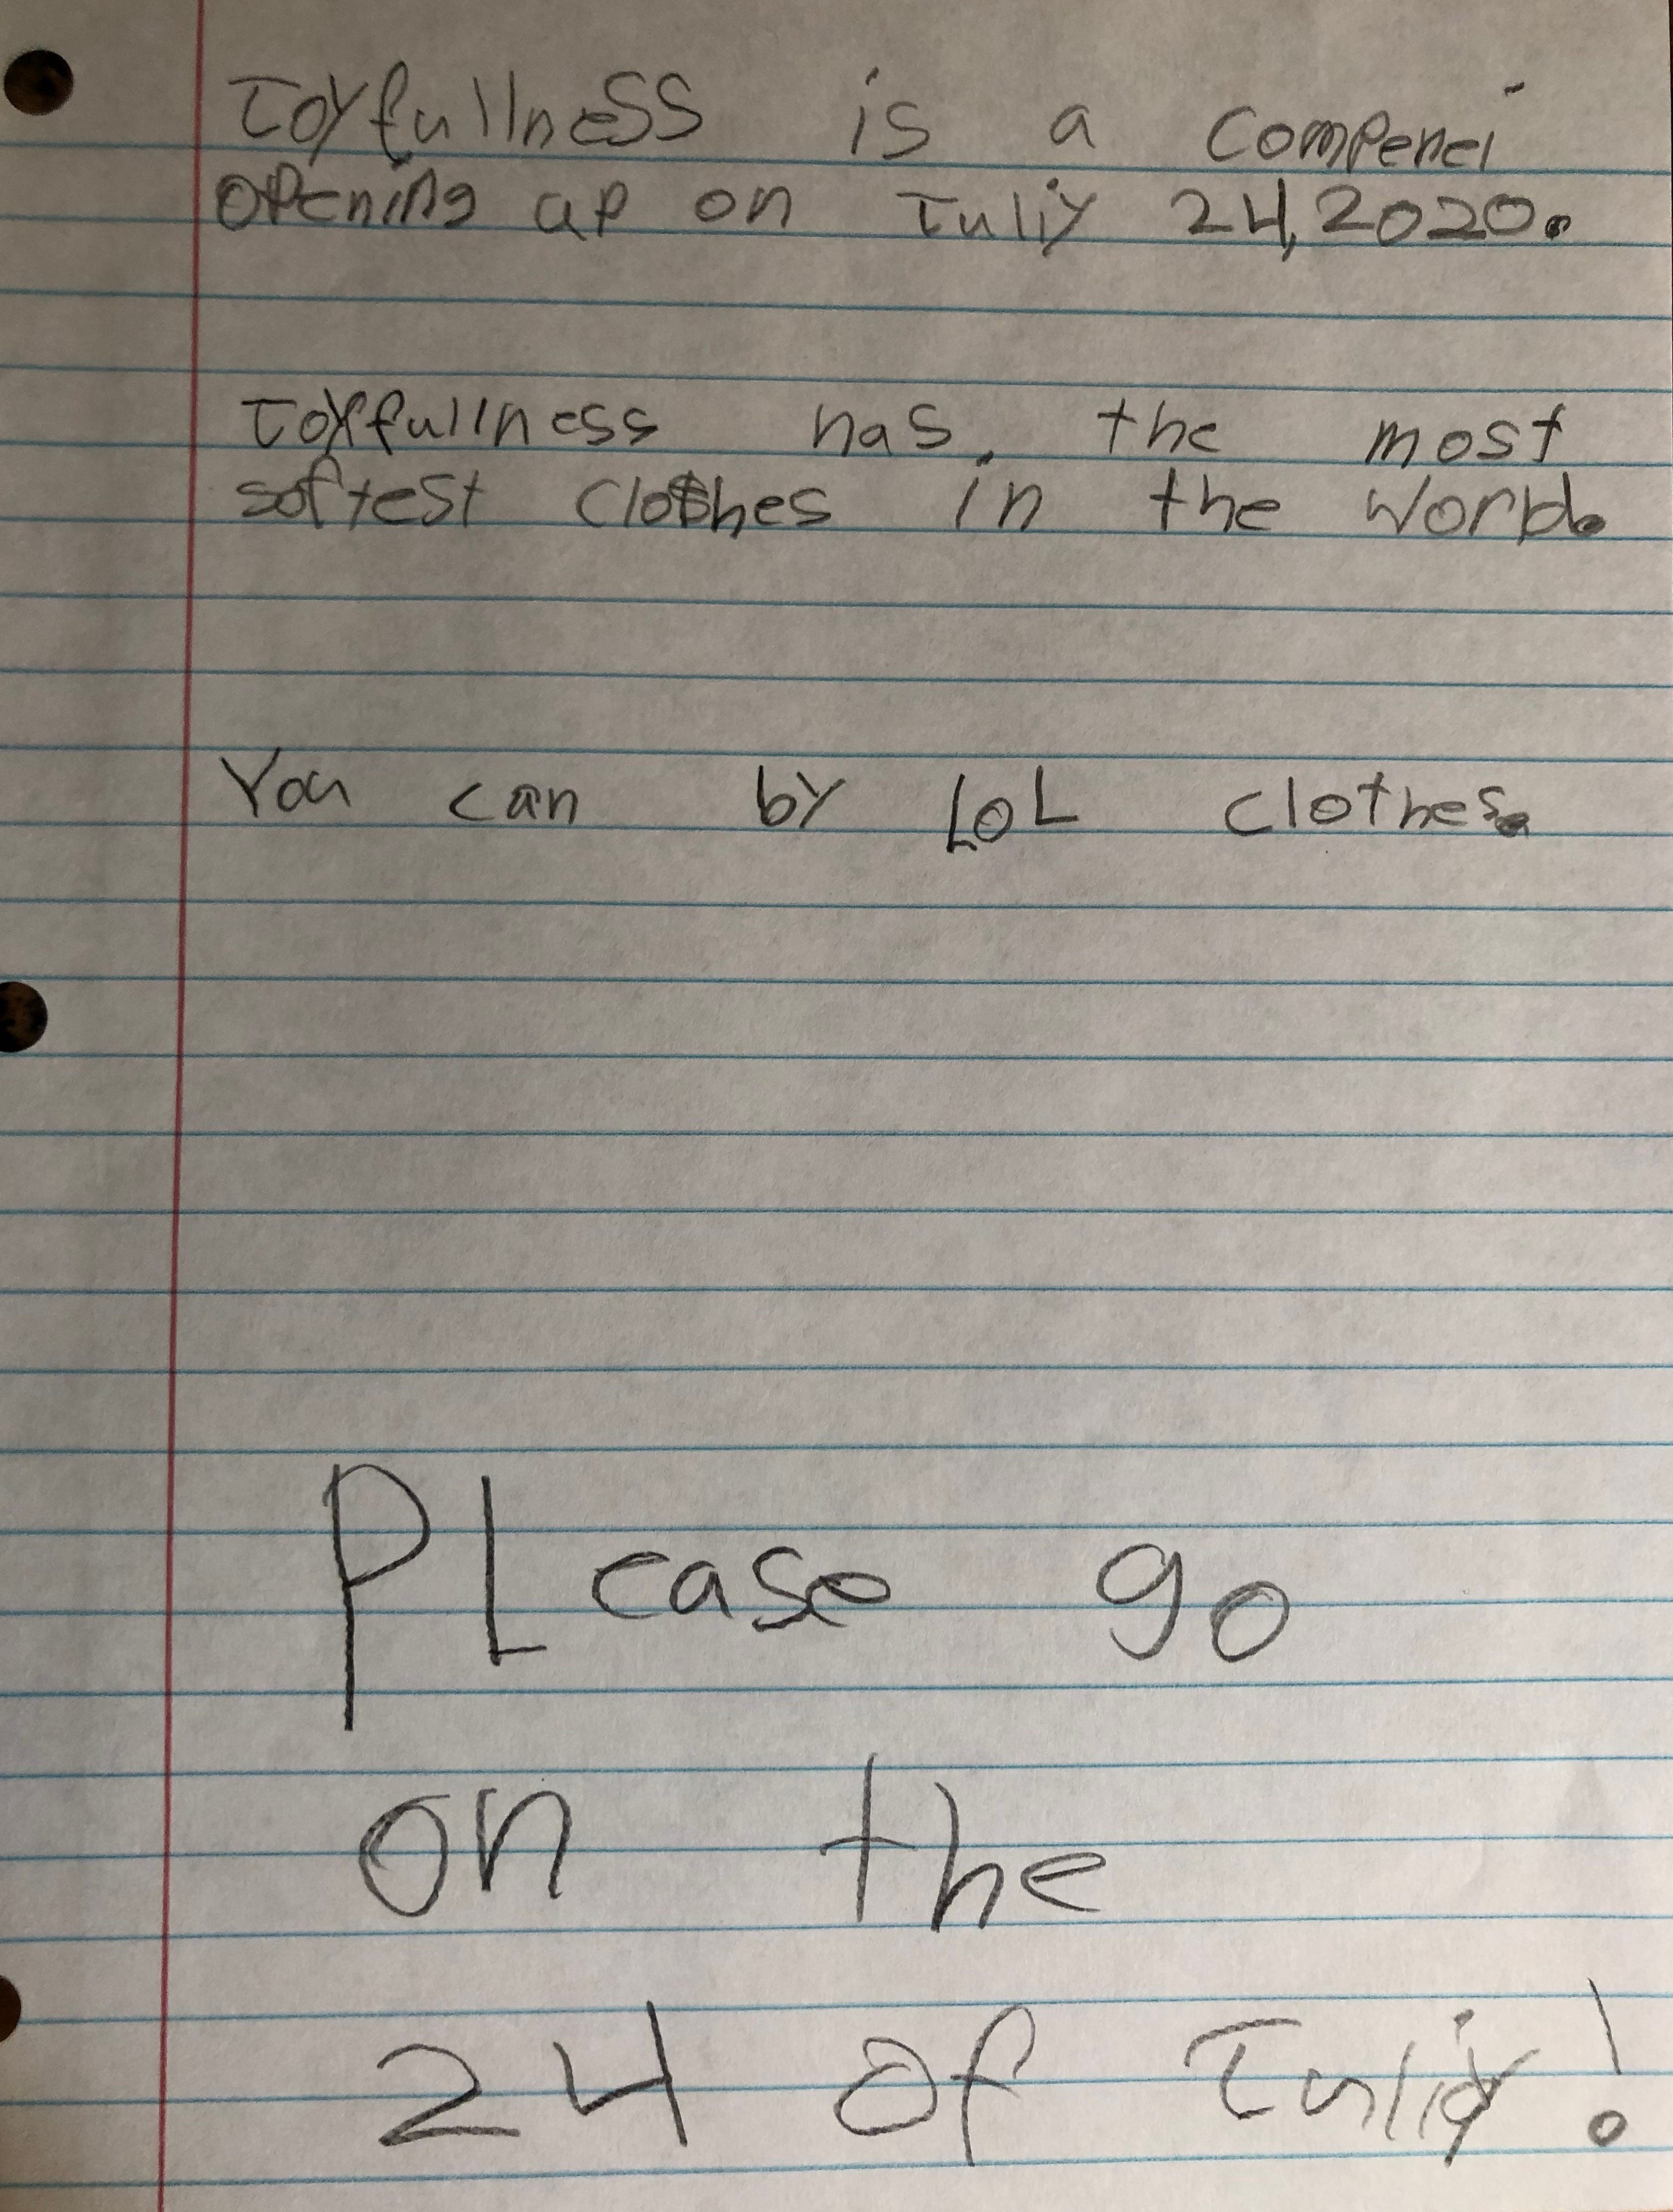 Joyfullness is a compenei
opening up on Juliy 24, 2020.
Joyfullness has the most
softest clothes in the world.
You can by LOL clothes.
PLease go
on the
24 of Juliy!